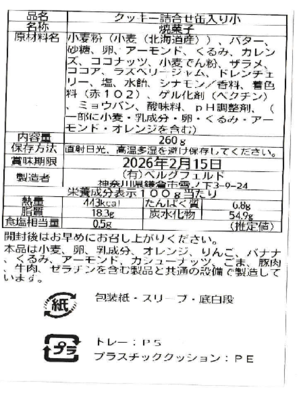 品名 クッキー詰合せ缶入り小
名称 焼菓子
原材料名 小麦粉（小麦（北海道産））、バター、
砂糖、卵、アーモンド、くるみ、カレン
ズ、ココナッツ、小麦でん粉、ザラメ、
ココア、ラズベリージャム、ドレンチェ
リー、塩、水飴、シナモン／香料、着色
料（赤102）、ゲル化剤（ペクチン）
、ミョウバン、酸味料、pH調整剤、（
一部に小麦・乳成分・卵・くるみ・アー
モンド・オレンジを含む）
内容量 260g
保存方法 直射日光、高温多湿を避け保存してください。
賞味期限 2026年2月15日
製造者 (有)ベルグフェルド
神奈川県鎌倉市雪ノ下3-9-24
栄養成分表示100g当たり
熱量 443kcal たんぱく質 6.8g
脂質 18.3g 炭水化物 54.9g
食塩相当量 0.5g （推定値）
開封後はお早めにお召し上がりください。
本品は小麦、卵、乳成分、オレンジ、りんご、バナナ
、くるみ、アーモンド、カシューナッツ、ごま、豚肉
、牛肉、ゼラチンを含む製品と共通の設備で製造して
います。
紙 包装紙・スリーブ・底白段
プラ トレー：PS
プラスチッククッション：PE